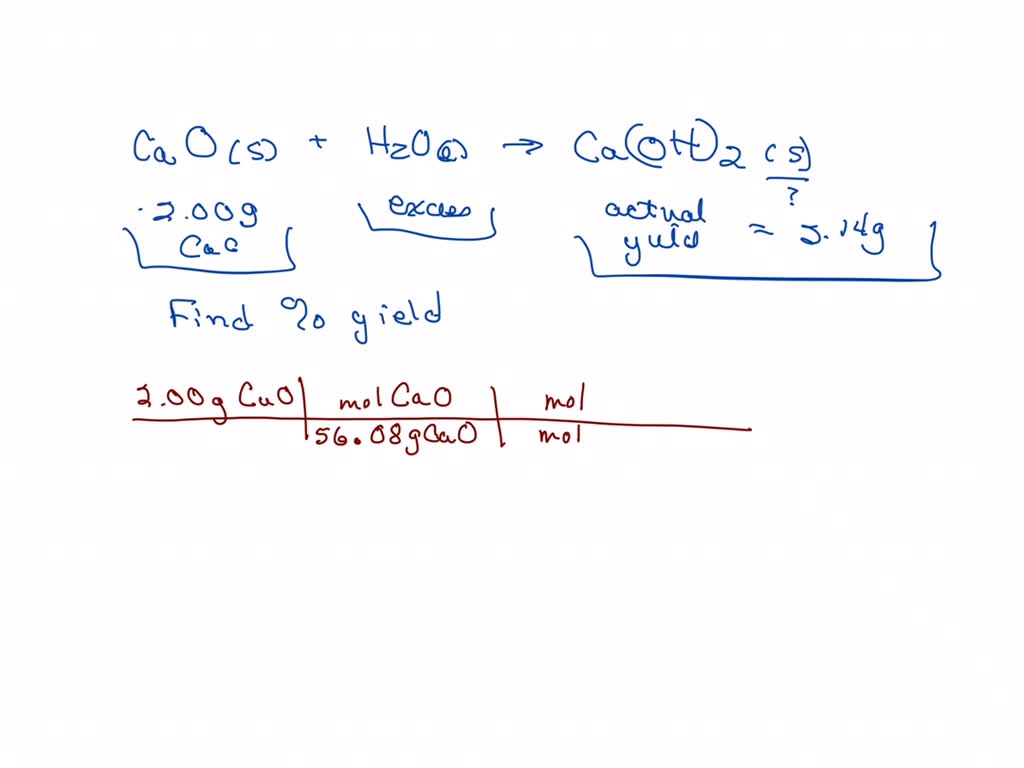 CaO(s) + H2O(l) → Ca(OH)2 (s)
?
2.00g CaO excess actual yield = 5.14g
Find % yield
2.00g CaO mol CaO mol
56.08gCaO mol